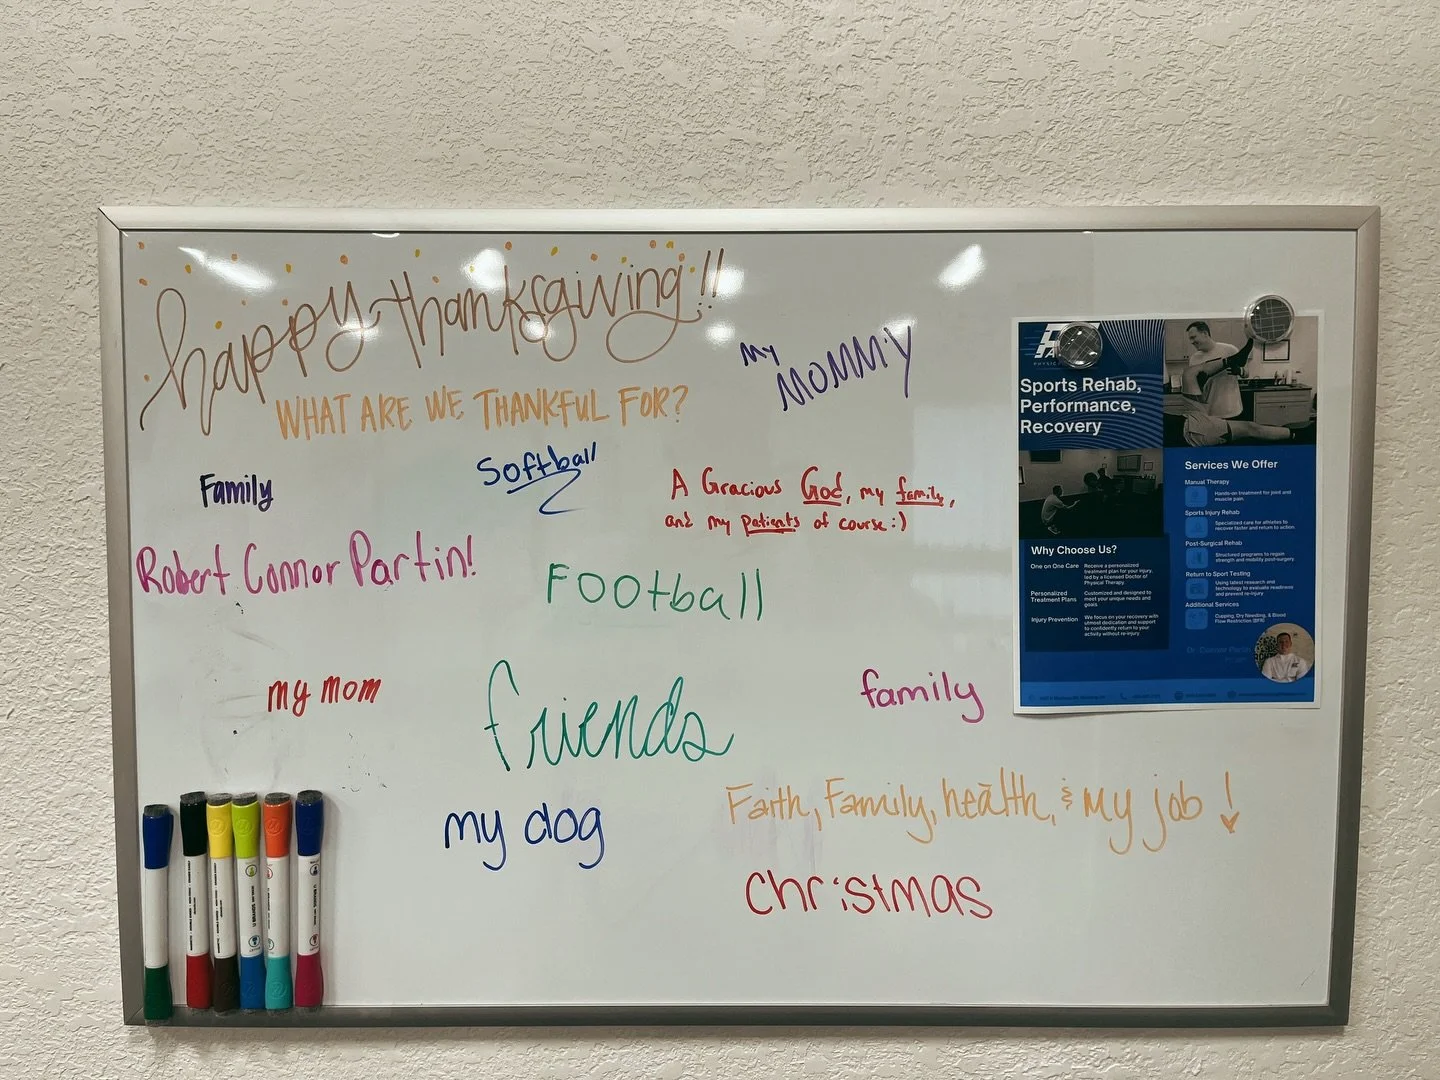 happy thanksgiving!!
WHAT ARE WE THANKFUL FOR?
My
MOMMiY
Family
Softball
A Gracious God, my family,
and my patients of course :)
Robert Connor Partin!
FOOtball
my mom
friends
family
my dog
Faith, Family, health, & my job!
christmas
Sports Rehab,
Performance,
Recovery
Services We Offer
Manual Therapy
Hands-on treatment for joint and
muscle pain.
Sports Injury Rehab
Specialized care for athletes to
recover faster and return to action.
Post-Surgical Rehab
Structured programs to regain
strength and mobility post-surgery.
Return to Sport Testing
Using latest research and
technology to evaluate readiness
and prevent re-injury
Additional Services
Cupping, Dry Needling, & Blood
Flow Restriction (BFR)
Why Choose Us?
One on One Care
Receive a personalized
treatment plan for your injury,
led by a licensed Doctor of
Physical Therapy.
Personalized
Treatment Plans
Customized and designed to
meet your unique needs and
goals
Injury Prevention
We focus on your recovery with
utmost dedication and support
to confidently return to your
activity without re-injury.
Dr. Connor Partin